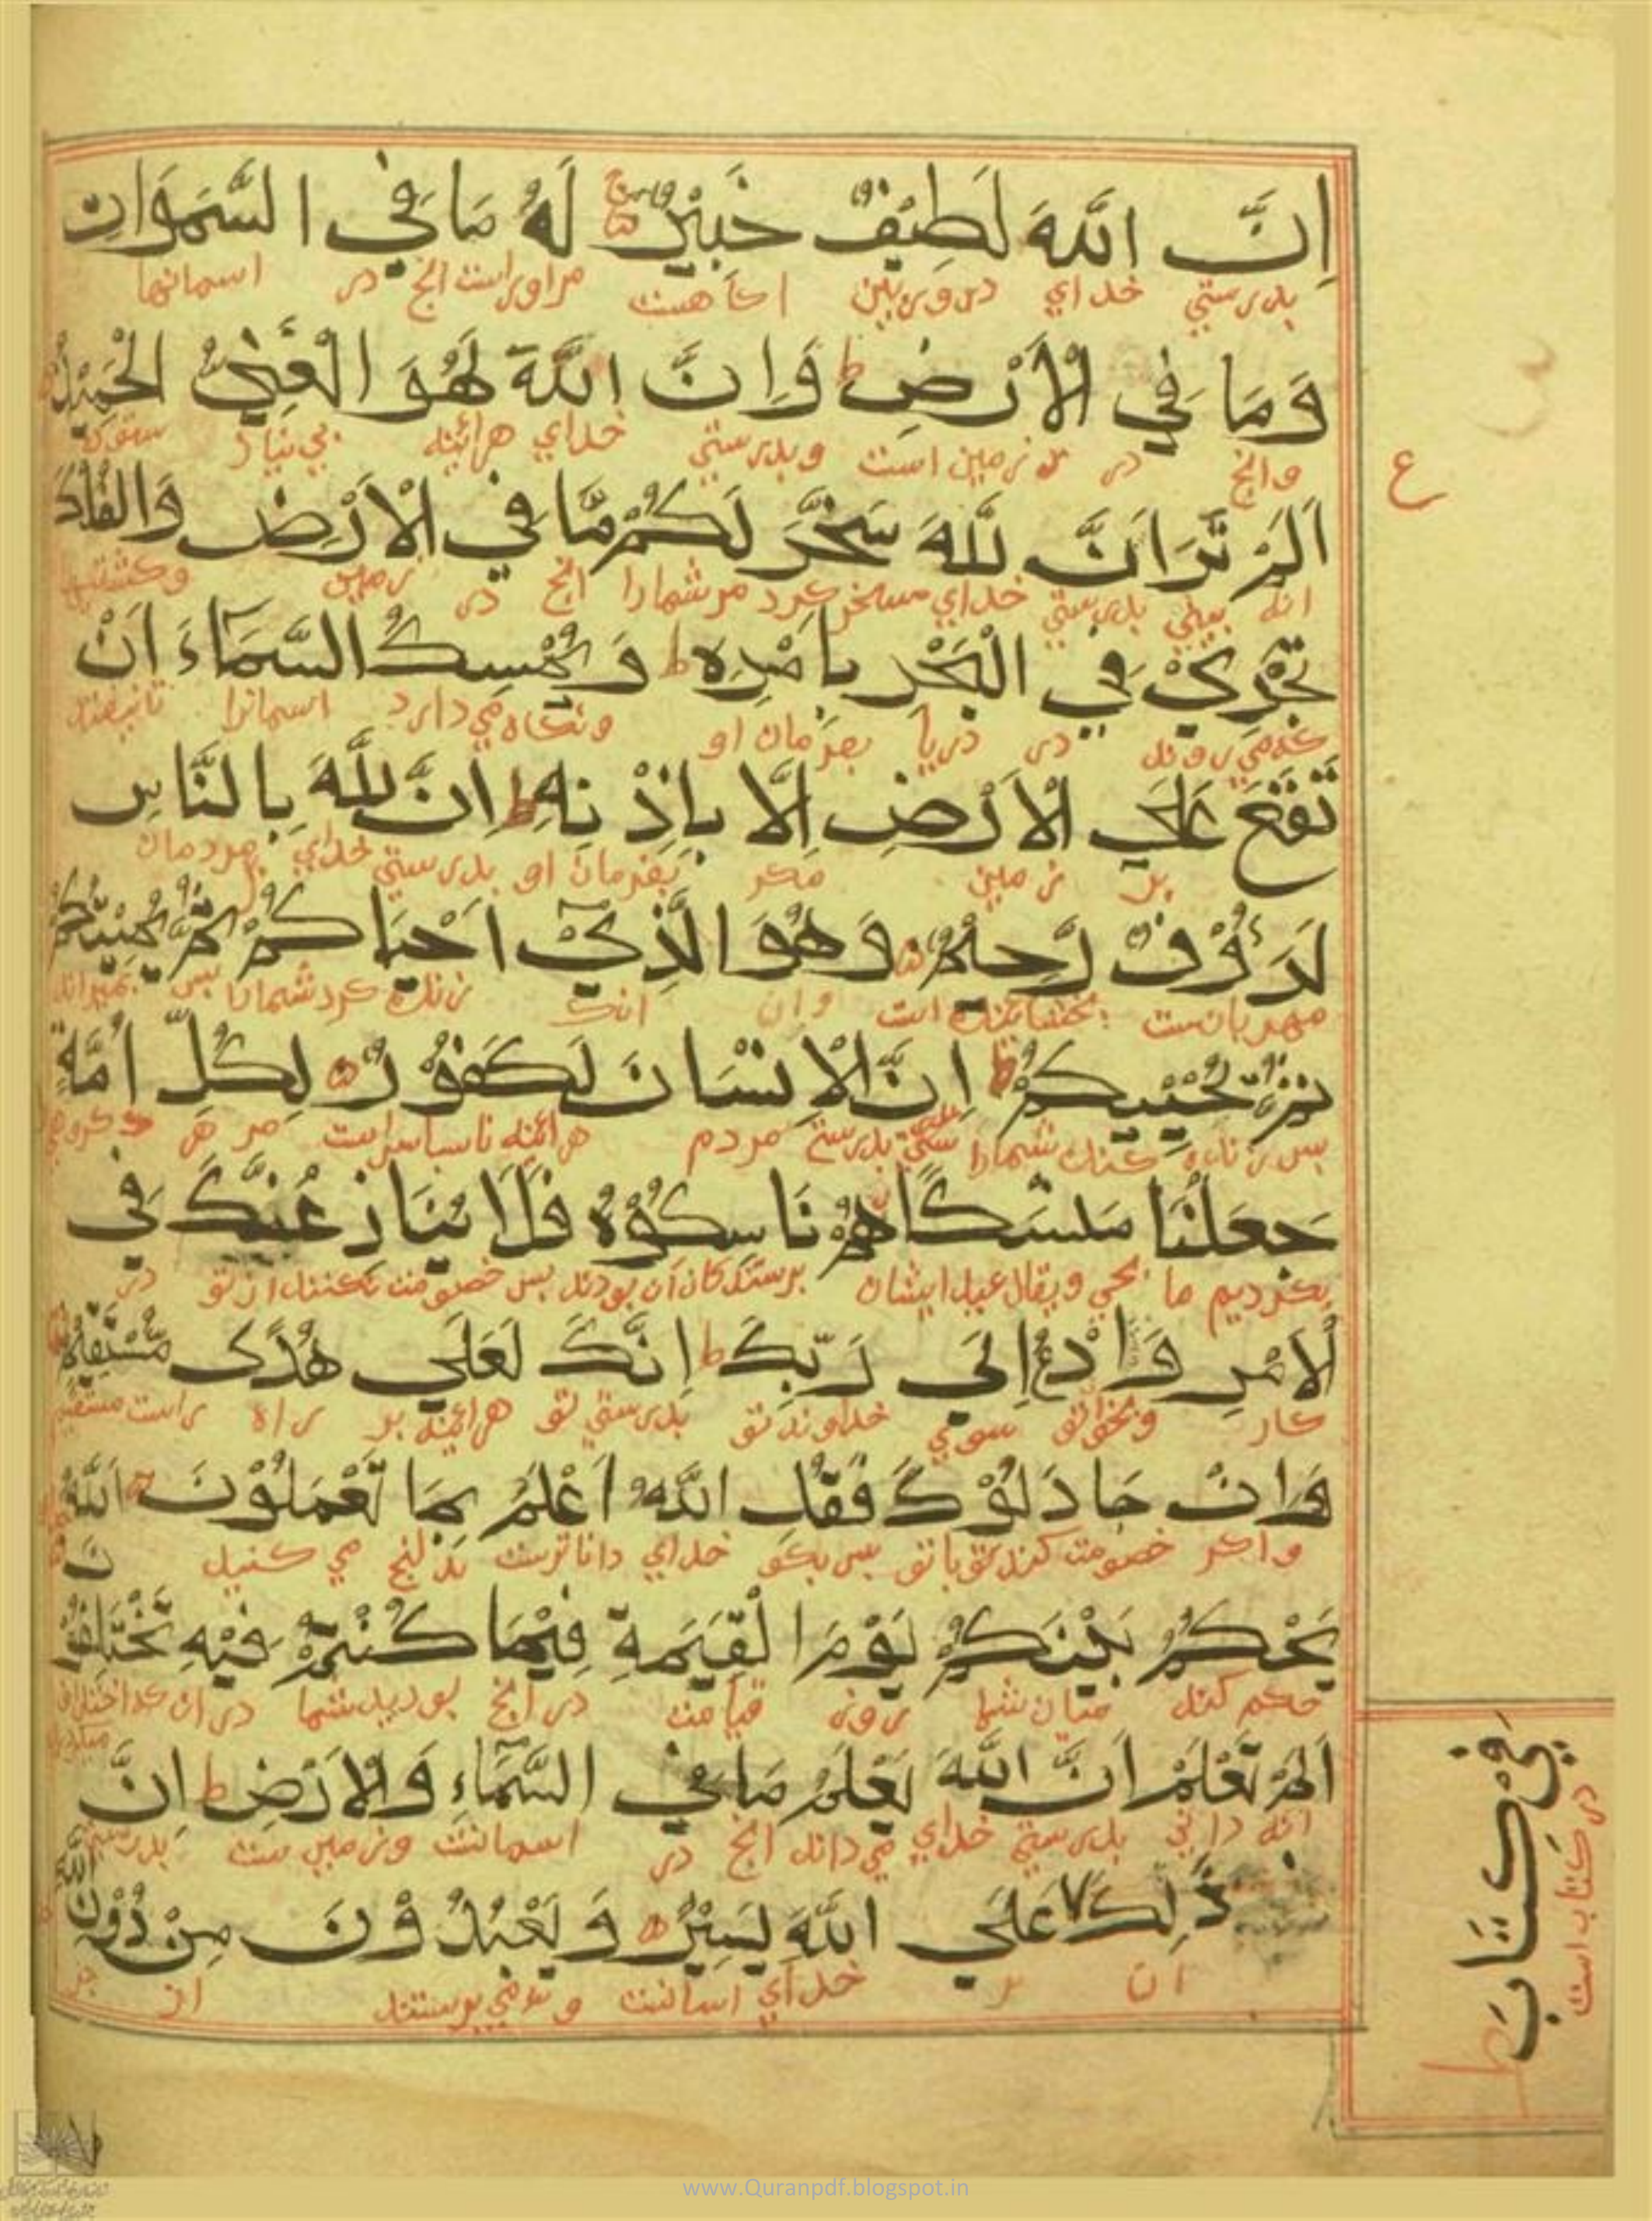 اِنَّ اللّٰهَ لَطِيْفٌ خَبِيْرٌ لَهُ مَا فِي السَّمَوَاتِ
بدرستي خداي دوربين اكاهست مراوراست انچ در اسمانها
وَمَا فِي الْاَرْضِ ط وَاِنَّ اللّٰهَ لَهُوَ الْغَنِيُّ الْحَمِيْدُ
وانچ در زمين است وبدرستي خداي هرائينه بي نياز ستوده
ع
اَلَمْ تَرَ اَنَّ للّٰهَ سَخَّرَ لَكُمْ مَّا فِي الْاَرْضِ وَالْفُلْكَ
بدرستي خداي مسخر كرد مر شمارا انچ در زمين وكشتيها
تَجْرِيْ فِي الْبَحْرِ بِاَمْرِهِ ط وَيُمْسِكُ السَّمَآءَ اَنْ
كه مي روند در دريا بفرمان او ونكاه مي دارد اسمانرا تانيفتد
تَقَعَ عَلَي الْاَرْضِ اِلَّا بِاِذْنِهِ ط اِنَّ للّٰهَ بِالنَّاسِ
بر زمين مكر بفرمان او بدرستي خداي بمردمان
لَرَءُوْفٌ رَّحِيْمٌ وَهُوَ الَّذِيْٓ اَحْيَاكُمْ ثُمَّ يُمِيْتُكُمْ
مهربانست بخشاينده است وان انك زنده كرد شمارا پس بميراند
ثُمَّ يُحْيِيكُمْ ط اِنَّ الْاِنْسَانَ لَكَفُوْرٌ لِكُلِّ اُمَّةٍ
پس زنده كند شمارا بدرستي مردم هرائينه ناسپاس است مر هر كروهي
جَعَلْنَا مَنْسَكًا هُمْ نَاسِكُوْهُ فَلَا يُنَازِعُنَّكَ فِي
بكرديم ما حجي ويقال عيد ايشان پرستندكان ان بودند پس خصومت نكنند از تو در
لْاَمْرِ وَادْعُ اِلَى رَبِّكَ ط اِنَّكَ لَعَلَي هُدًى مُسْتَقِيْمٍ
كار وبخوان تو سوي خداوند تو بدرستي تو هرائينه بر راه راست مستقيم
وَاِنْ جَادَلُوْكَ فَقُلِ اللّٰهُ اَعْلَمُ بِمَا تَعْمَلُوْنَ اَللّٰهُ
واكر خصومت كنند تو با تو پس بكو خداي داناترست بدانچ مي كنيد
يَحْكُمُ بَيْنَكُمْ يَوْمَ الْقِيَمَةِ فِيْمَا كُنْتُمْ فِيْهِ تَخْتَلِفُوْنَ
حكم كند ميان شما روز قيامت در انچ بوديد شما در ان كه اختلاف ميكرديد
اَلَمْ تَعْلَمْ اَنَّ اللّٰهَ يَعْلَمُ مَا فِي السَّمَآءِ وَلْاَرْضِ ط اِنَّ
انه داني بدرستي خداي مي داند انچ در اسمانست وزمين ست بدرستي
ذٰلِكَ عَلَي اللّٰهِ يَسِيْرٌ وَيَعْبُدُوْنَ مِنْ دُوْنِ اللّٰهِ
ان بر خداي اسانست ومي پرستند از جز
فِيْ كِتَابٍ ط
در كتاب است
www.Quranpdf.blogspot.in